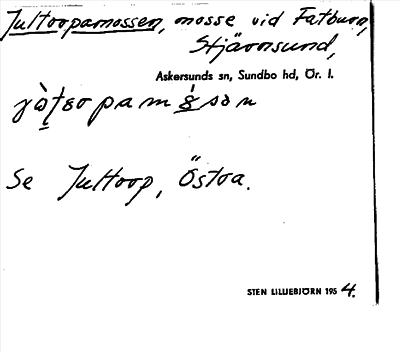 Jultorpamossen, mosse vid Fatburn,
Stjärnsund,
Askersunds sn, Sundbo hd, Ör. l.
Se Jultorp, Östra.
STEN LILLIEBJÖRN 1954.